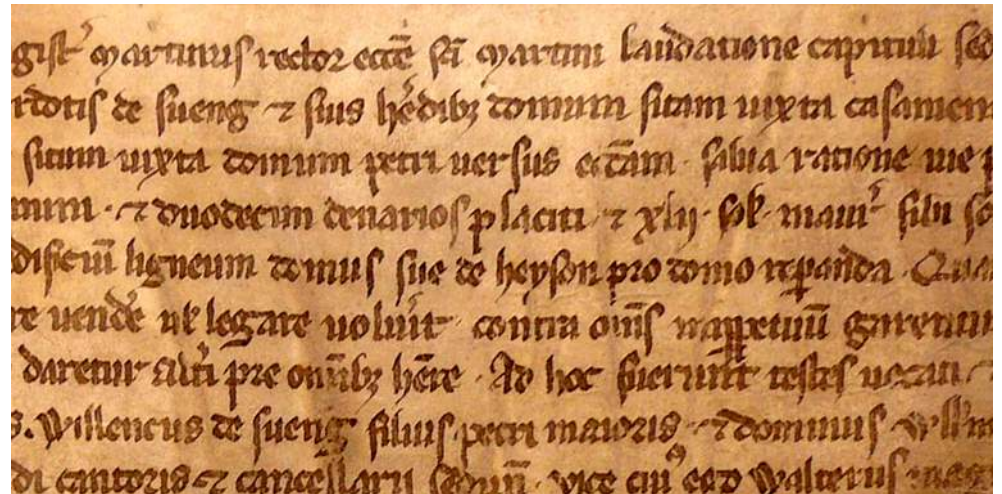 gist' Martinus rector ecce sci Martini laudatione capituli sed
rdotis de sueng ⁊ suis h'edibꝫ domum sitam iuxta casamen
sitam iuxta domum petri uersus eccam. salua ratione uie p
mum. ⁊ duodecim denarios placiti ⁊ xlij. sol. filii
edificiū ligneum domus sue de heyson pro domo repanda. Qua
re uende ul legare uoluit contra oms inppetuū
daretur alt'i pre omnibꝫ hēre. Ad hoc fuerunt testes uocati. ⁊
s. Willencus de sueng filius petri maioris. ⁊ dominus Will'm
di cantoris ⁊ cancellarii vice ego Walterus